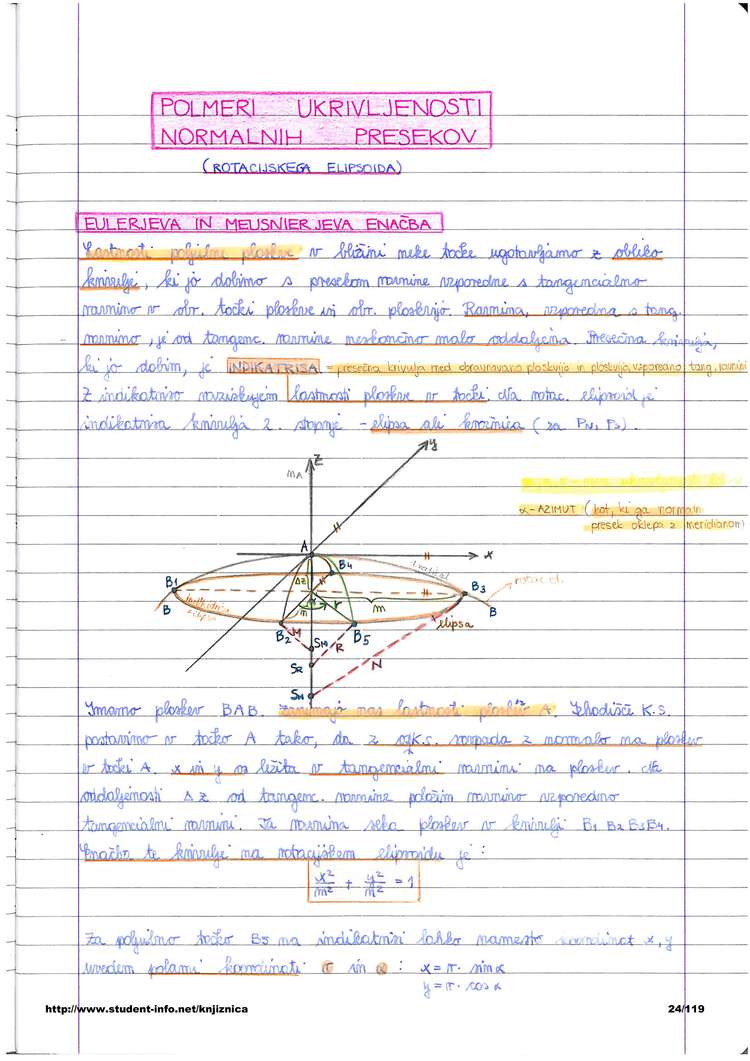 POLMERI UKRIVLJENOSTI
NORMALNIH PRESEKOV
(ROTACIJSKEGA ELIPSOIDA)
EULERJEVA IN MEUSNIERJEVA ENAČBA
Lastnosti poljubne ploskve v bližini neke točke ugotavljamo z obliko
krivulje, ki jo dobimo s presekom ravnine vzporedne s tangencialno
ravnino v obr. točki ploskve in obr. ploskvijo. Ravnina, vzporedna s tang.
ravnino, je od tangenc. ravnine neskončno malo oddaljena. Presečna krivulja,
ki jo dobim, je INDIKATRISA = presečna krivulja med obravnavano ploskvijo in ploskvijo, vzporedno tang. ravnini
Z indikatriso raziskujem lastnosti ploskve v točki. Na rotac. elipsoid je
indikatrisa krivulja 2. stopnje - elipsa ali krožnica (za PN, PS).
y
z
MA
α - AZIMUT (kot, ki ga normaln
presek oklepa z meridianom)
A
x
B4
B1
Δz
B3
rotac. el.
B
indikatrisa
= elipsa
n
r
m
B
B2
M
SM
R
B5
elipsa
SR
N
SN
Imamo ploskev BAB. Zanimajo nas lastnosti ploskve A. Izhodišče K.S.
postavimo v točko A tako, da z os K.S. sovpada z normalo na ploskev
v točki A. x in y os ležita v tangencialni ravnini na ploskev. Na
oddaljenosti Δz od tangenc. ravnine položim ravnino vzporedno
tangencialni ravnini. Ta ravnina seka ploskev v krivulji B1 B2 B3 B4.
Enačba te krivulje na rotacijskem elipsoidu je:
x²/m² + y²/n² = 1
Za poljubno točko B5 na indikatrisi lahko namesto koordinat x, y
uvedem polarni koordinati r in α : x = r · sin α
y = r · cos α
http://www.student-info.net/knjiznica
24/119